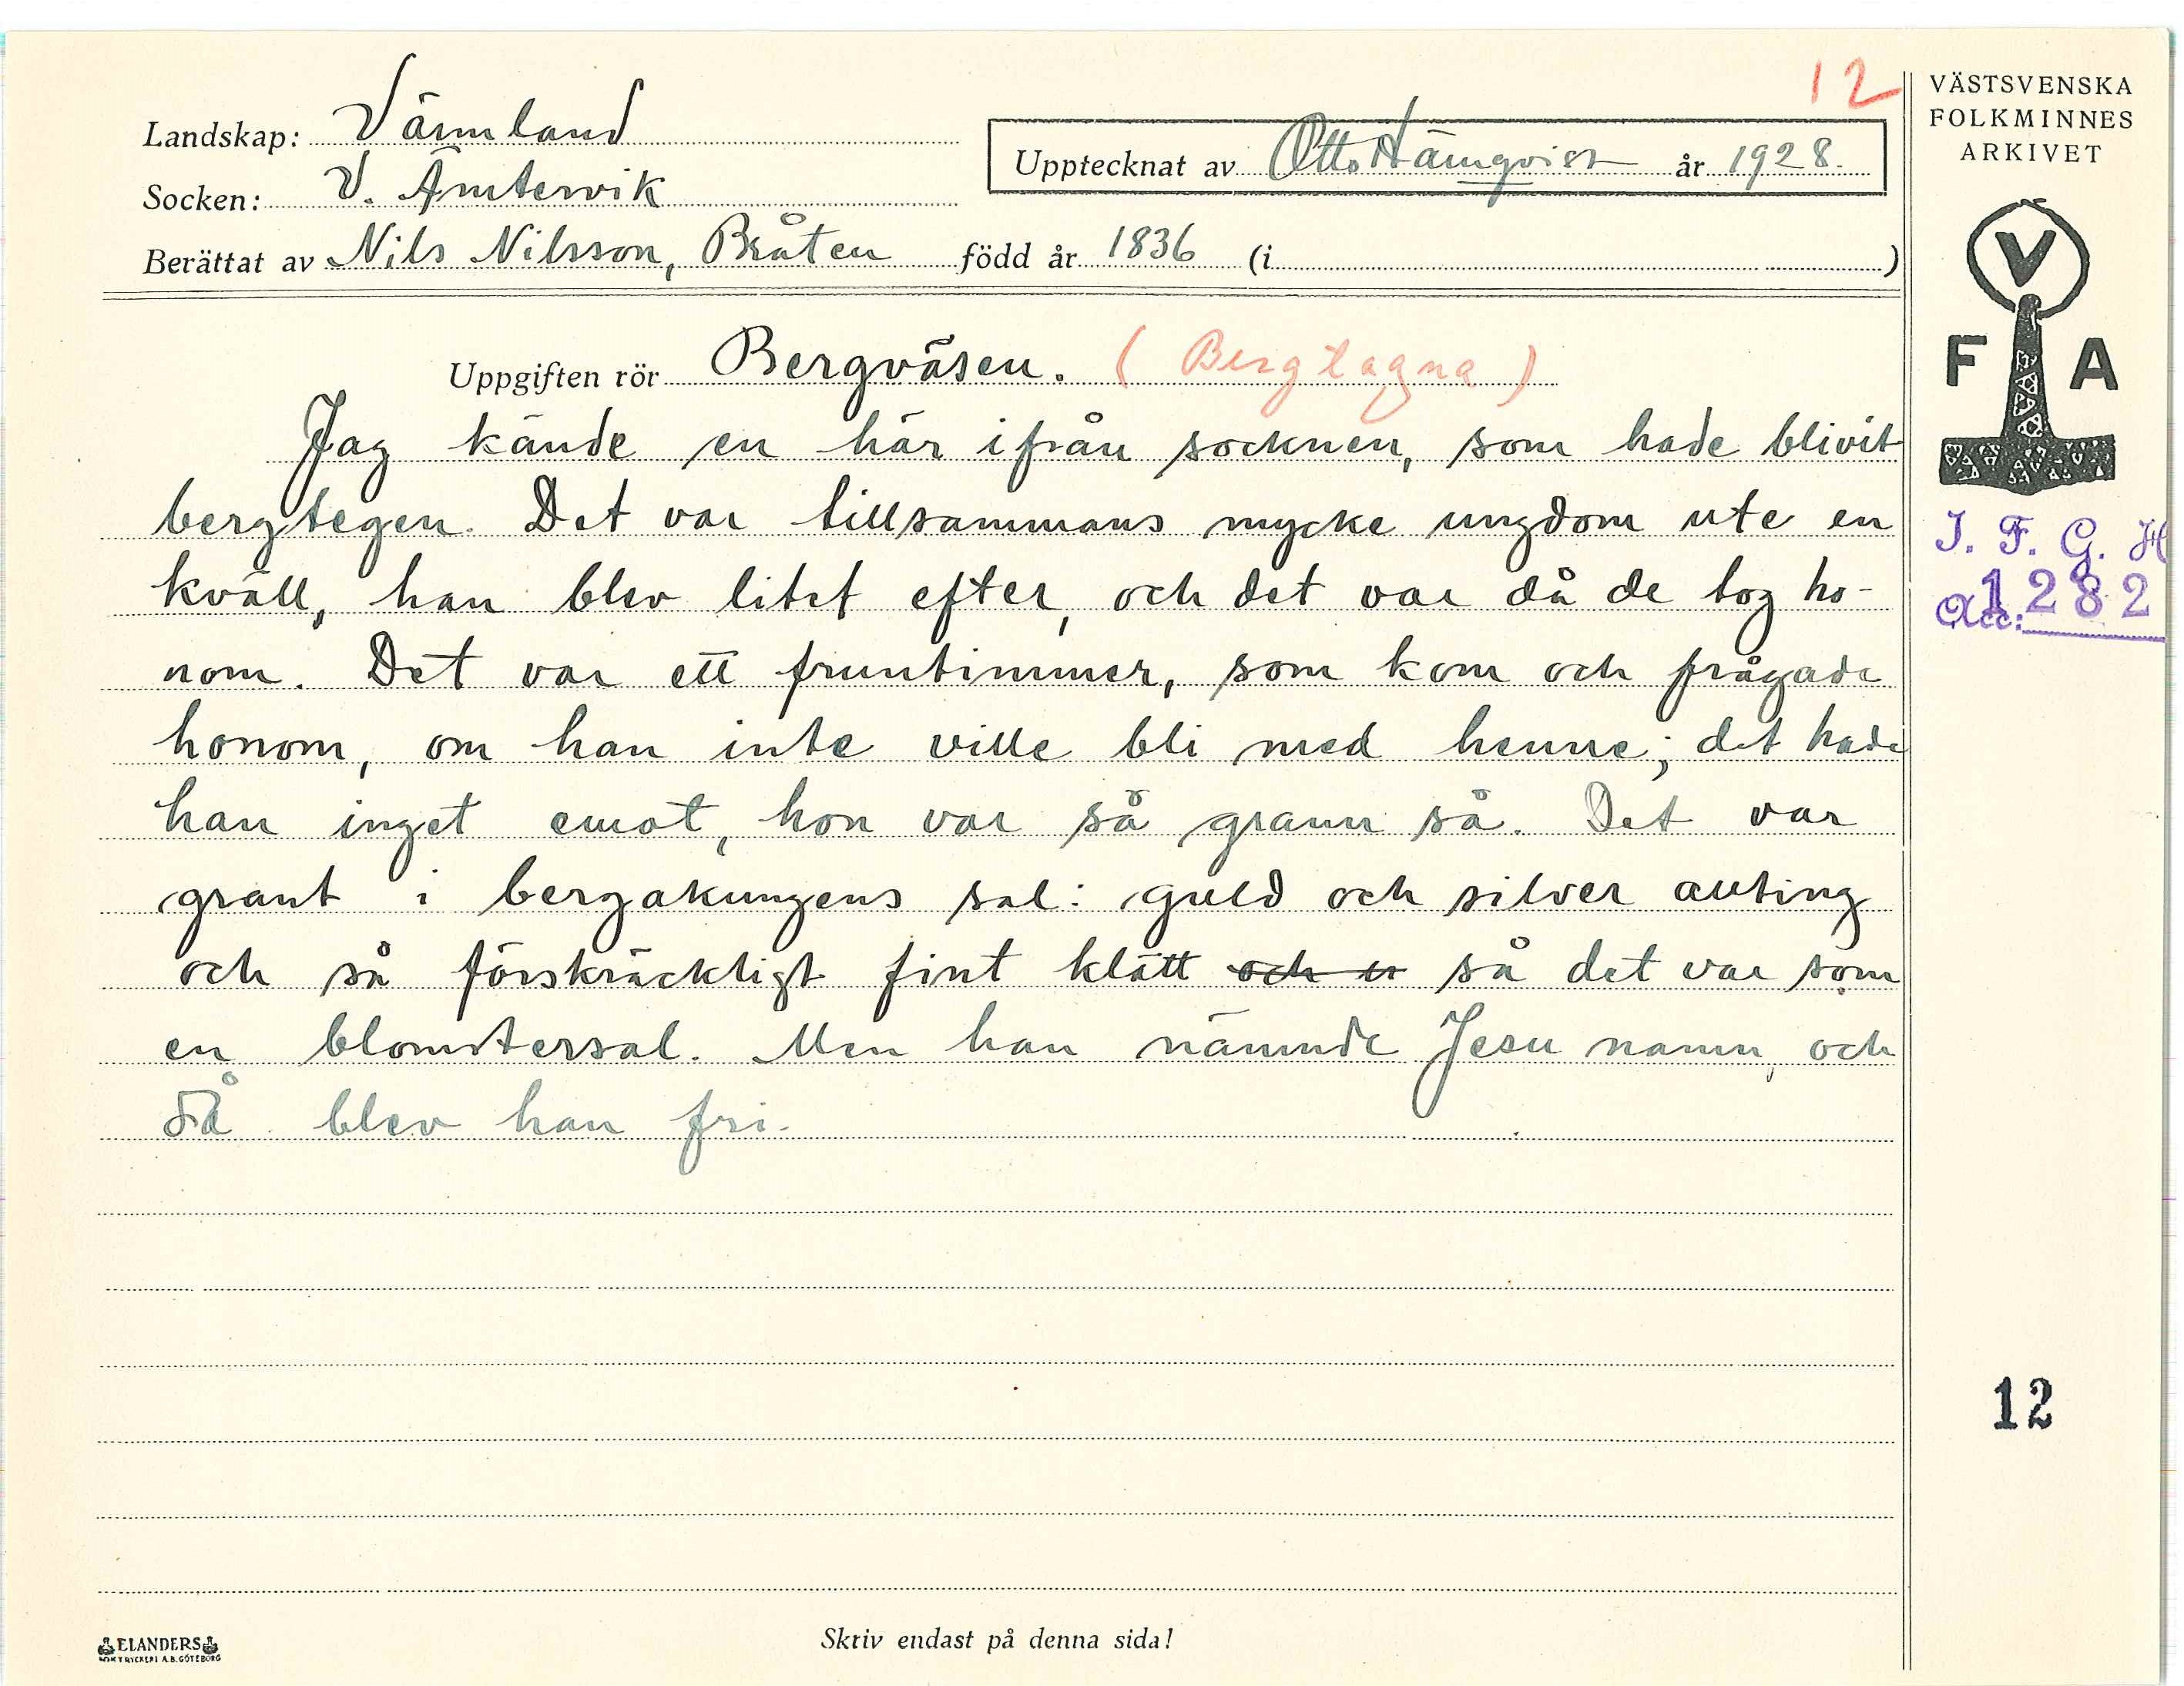 12
Landskap: Värmland
Socken: V. Ämtervik
Berättat av Nils Nilsson, Bråten född år 1836 (i )
Upptecknat av Otto Hämqvist år 1928.
Uppgiften rör Bergväsen. (Bergtagna)
Jag kände en här ifrån socknen, som hade blivit
bergtegen. Det var tillsammans mycke ungdom ute en
kväll, han blev litet efter, och det var då de tog ho-
nom. Det var ett fruntimmer, som kom och frågade
honom, om han inte ville bli med henne; det hade
han inget emot, hon var så grann så. Det var
grant i bergakungens sal: guld och silver allting
och så förskräckligt fint klätt och så det var som
en blomstersal. Men han nämnde Jesu namn, och
då blev han fri.
VÄSTSVENSKA
FOLKMINNES
ARKIVET
V
F A
I. F. G. H
Acc: 1282
12
ELANDERS
BOKTRYCKERI A.B. GÖTEBORG
Skriv endast på denna sida!